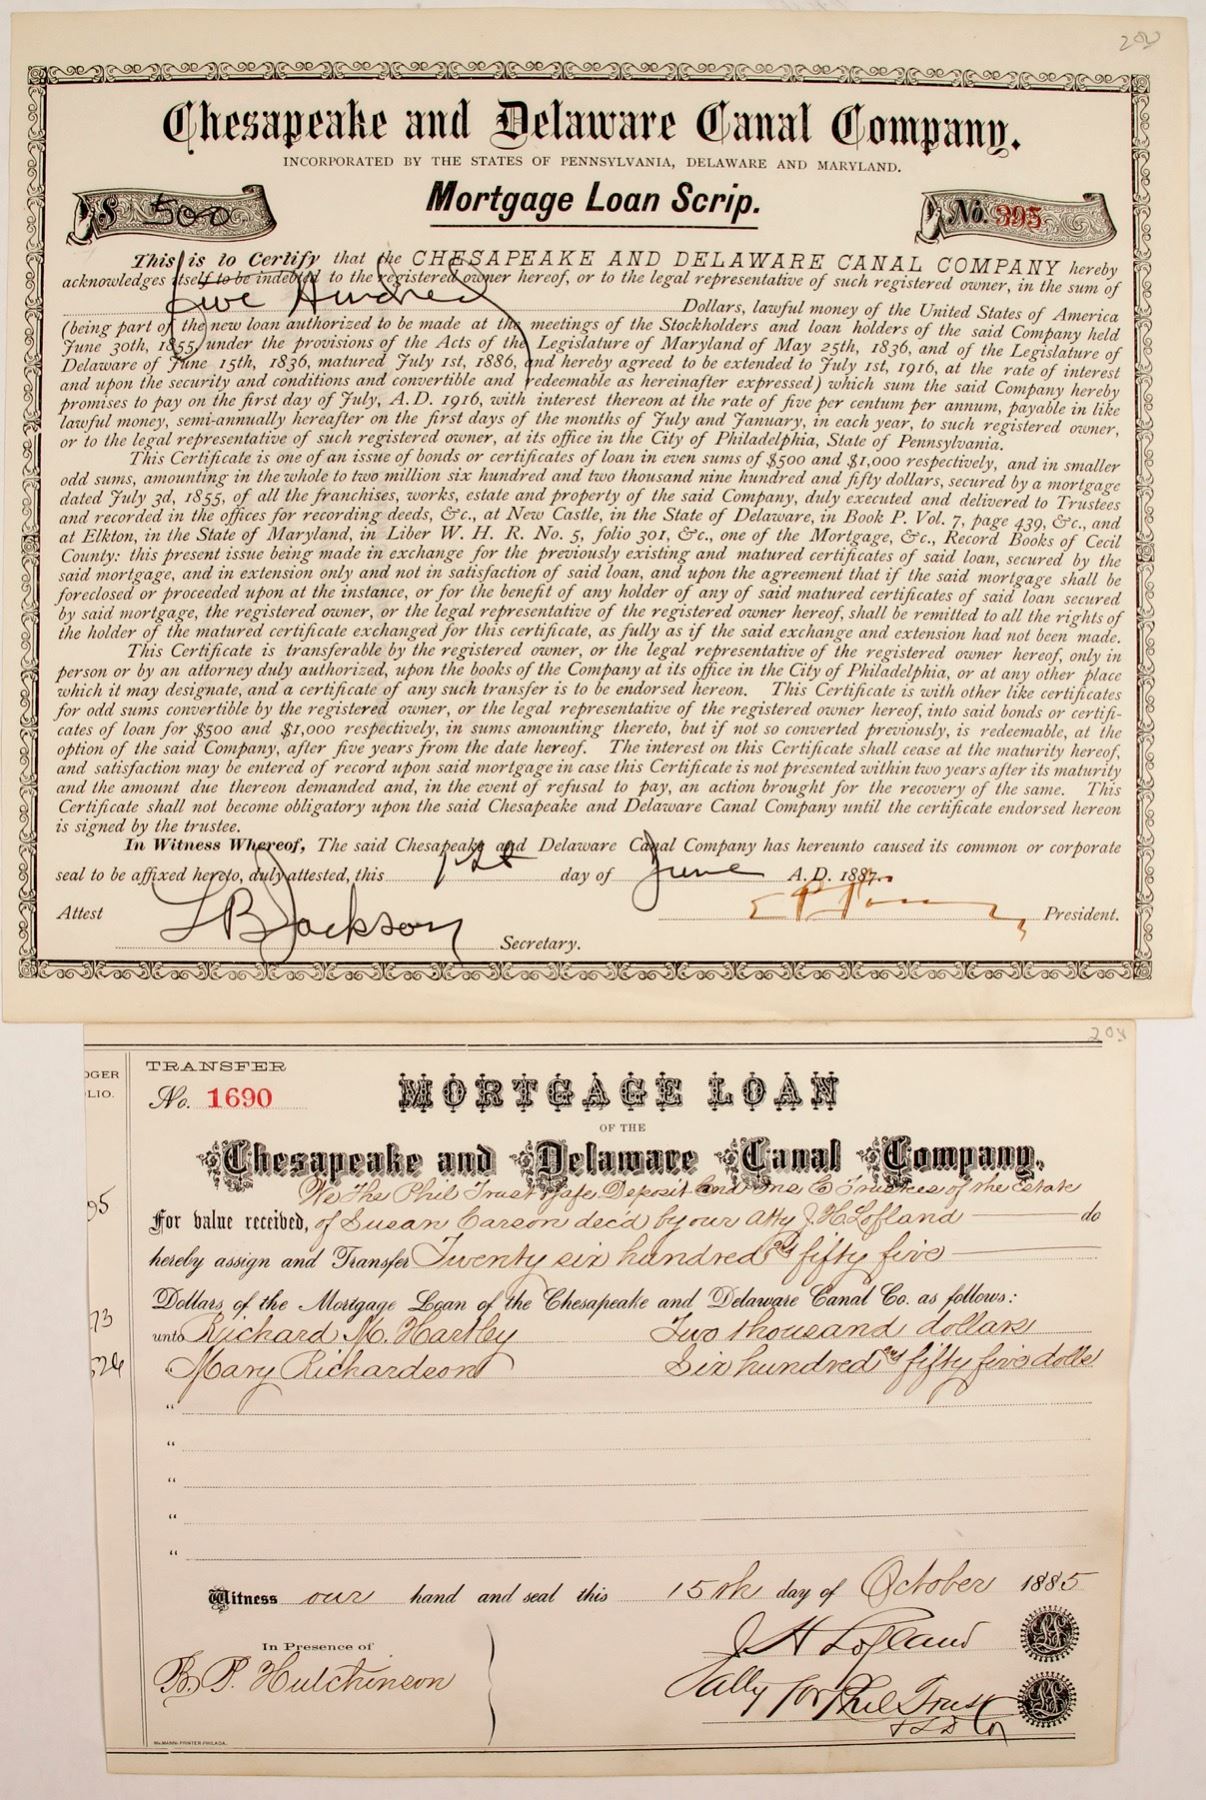 Chesapeake and Delaware Canal Company.
INCORPORATED BY THE STATES OF PENNSYLVANIA, DELAWARE AND MARYLAND.
Mortgage Loan Scrip.
$ 500
No. 395
This is to Certify that the CHESAPEAKE AND DELAWARE CANAL COMPANY hereby
acknowledges itself to be indebted to the registered owner hereof, or to the legal representative of such registered owner, in the sum of
Five Hundred Dollars, lawful money of the United States of America
(being part of the new loan authorized to be made at the meetings of the Stockholders and loan holders of the said Company held
June 30th, 1855, under the provisions of the Acts of the Legislature of Maryland of May 25th, 1836, and of the Legislature of
Delaware of June 15th, 1836, matured July 1st, 1886, and hereby agreed to be extended to July 1st, 1916, at the rate of interest
and upon the security and conditions and convertible and redeemable as hereinafter expressed) which sum the said Company hereby
promises to pay on the first day of July, A.D. 1916, with interest thereon at the rate of five per centum per annum, payable in like
lawful money, semi-annually hereafter on the first days of the months of July and January, in each year, to such registered owner,
or to the legal representative of such registered owner, at its office in the City of Philadelphia, State of Pennsylvania.
This Certificate is one of an issue of bonds or certificates of loan in even sums of $500 and $1,000 respectively, and in smaller
odd sums, amounting in the whole to two million six hundred and two thousand nine hundred and fifty dollars, secured by a mortgage
dated July 3d, 1855, of all the franchises, works, estate and property of the said Company, duly executed and delivered to Trustees
and recorded in the offices for recording deeds, &c., at New Castle, in the State of Delaware, in Book P. Vol. 7, page 439, &c., and
at Elkton, in the State of Maryland, in Liber W. H. R. No. 5, folio 301, &c., one of the Mortgage, &c., Record Books of Cecil
County: this present issue being made in exchange for the previously existing and matured certificates of said loan, secured by the
said mortgage, and in extension only and not in satisfaction of said loan, and upon the agreement that if the said mortgage shall be
foreclosed or proceeded upon at the instance, or for the benefit of any holder of any of said matured certificates of said loan secured
by said mortgage, the registered owner, or the legal representative of the registered owner hereof, shall be remitted to all the rights of
the holder of the matured certificate exchanged for this certificate, as fully as if the said exchange and extension had not been made.
This Certificate is transferable by the registered owner, or the legal representative of the registered owner hereof, only in
person or by an attorney duly authorized, upon the books of the Company at its office in the City of Philadelphia, or at any other place
which it may designate, and a certificate of any such transfer is to be endorsed hereon. This Certificate is with other like certificates
for odd sums convertible by the registered owner, or the legal representative of the registered owner hereof, into said bonds or certifi-
cates of loan for $500 and $1,000 respectively, in sums amounting thereto, but if not so converted previously, is redeemable, at the
option of the said Company, after five years from the date hereof. The interest on this Certificate shall cease at the maturity hereof,
and satisfaction may be entered of record upon said mortgage in case this Certificate is not presented within two years after its maturity
and the amount due thereon demanded and, in the event of refusal to pay, an action brought for the recovery of the same. This
Certificate shall not become obligatory upon the said Chesapeake and Delaware Canal Company until the certificate endorsed hereon
is signed by the trustee.
In Witness Whereof, The said Chesapeake and Delaware Canal Company has hereunto caused its common or corporate
seal to be affixed hereto, duly attested, this 1st day of June A.D. 1887.
Attest L B Jackson Secretary. President.
OGER
LIO.
TRANSFER
No. 1690
MORTGAGE LOAN
OF THE
Chesapeake and Delaware Canal Company.
We The Phil Trust Safe Deposit and Ins Co Trustees of the Estate
For value received, of Susan Carson dec'd by our Atty J. H Lofland do
hereby assign and Transfer Twenty six hundred & fifty five
Dollars of the Mortgage Loan of the Chesapeake and Delaware Canal Co. as follows:
unto Richard M. Hartley Two thousand dollars
Mary Richardson Six hundred & fifty five dolls
"
"
"
"
"
Witness our hand and seal this 15th day of October 1885
In Presence of
B. P. Hutchinson
J H Lofland
Atty for Phil Trust
S D Co
McMANN PRINTER PHILADA.